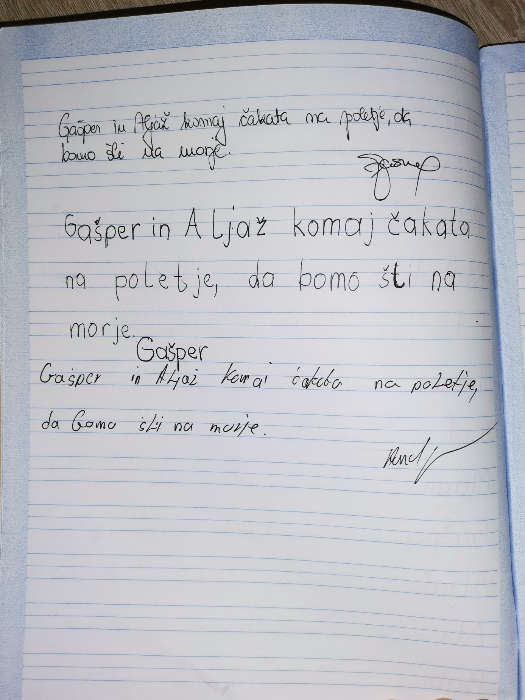 Gašper in Aljaž komaj čakata na poletje, da
bomo šli na morje.
Gašper in Aljaž komaj čakata
na poletje, da bomo šti na
morje.
Gašper
Gašper in Aljaž komaj čakata na poletje,
da bomo šli na morje.